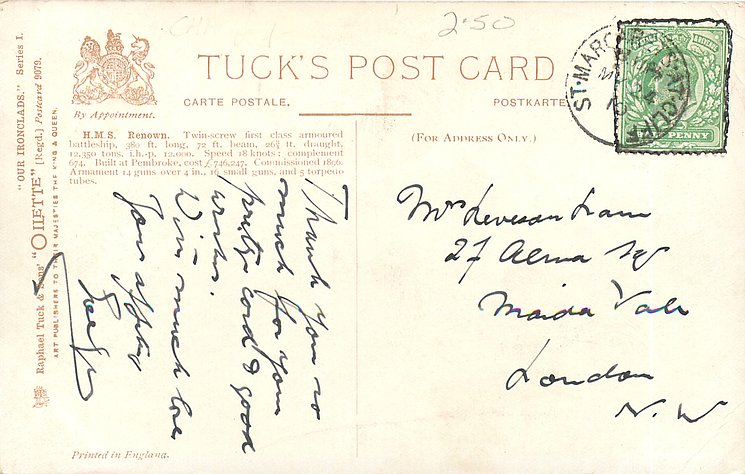 2.50
TUCK'S POST CARD
CARTE POSTALE.
POSTKARTE
By Appointment.
(FOR ADDRESS ONLY.)
H.M.S. Renown. Twin-screw first class armoured
battleship, 380 ft. long, 72 ft. beam, 26¾ ft. draught,
12,350 tons, i.h.p. 12,000. Speed 18 knots; complement
674. Built at Pembroke, cost £746,247. Commissioned 1896.
Armament 14 guns over 4 in., 16 small guns, and 5 torpedo
tubes.
"OUR IRONCLADS." Series I.
Raphael Tuck & Sons' "OILETTE" [Regd.] Postcard 9079.
ART PUBLISHERS TO THEIR MAJESTIES THE KING & QUEEN.
Thank you so
much for your
pretty card & good
wishes.
With much love
Your
ST. MARGARETS AT
PENNY
Mrs Leveson
27 Alma Sq
Maida Vale
London
N.W
Printed in England.